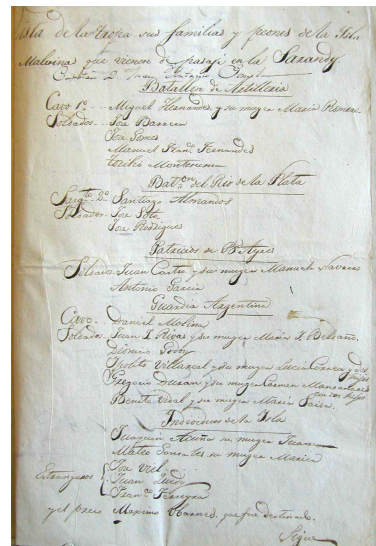 Lista de la tropa sus familias y peones de la Isla
Malvina que vienen de pasaje en la Sarandy.
Batallon de Artilleria
Cavo 1º.. Miguel Hernandes y su muger Maria Romero
Soldados.. Jose Barrera
Jose Gomes
Manuel Franco Fernandes
Toribio Montesuma
Baton del Rio de la Plata
Sargto 2º Santiago Almandos
Soldados Jose Soto
Jose Rodrigues
Patricios de Bs Ayres
Soldado Juan Castro y su muger Manuela Navarro
Antonio Garcia
Guardia Argentina
Cavo.. Daniel Molina
Soldados. Juan J. Rivas y su muger Maria I. Beldaño
Dionicio Godoy
Ipolito Villareal y su muger Lucia Correa y dos hijos
Gregorio Duran y su muger Carmen Manzanares con dos hijos
Benito Vidal y su muger Maria Saisa
Individuos de la Isla
Juaquin Acuña su muger Juana
Mateo Gonzales su muger Marica
Estrangeros Jose Viel
Juan Quedy
Franco Ferreyra
y el preso Maximo Warnes, que fue destinado.
Sigue